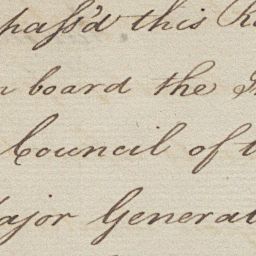 pass'd this
board the
Council of
General